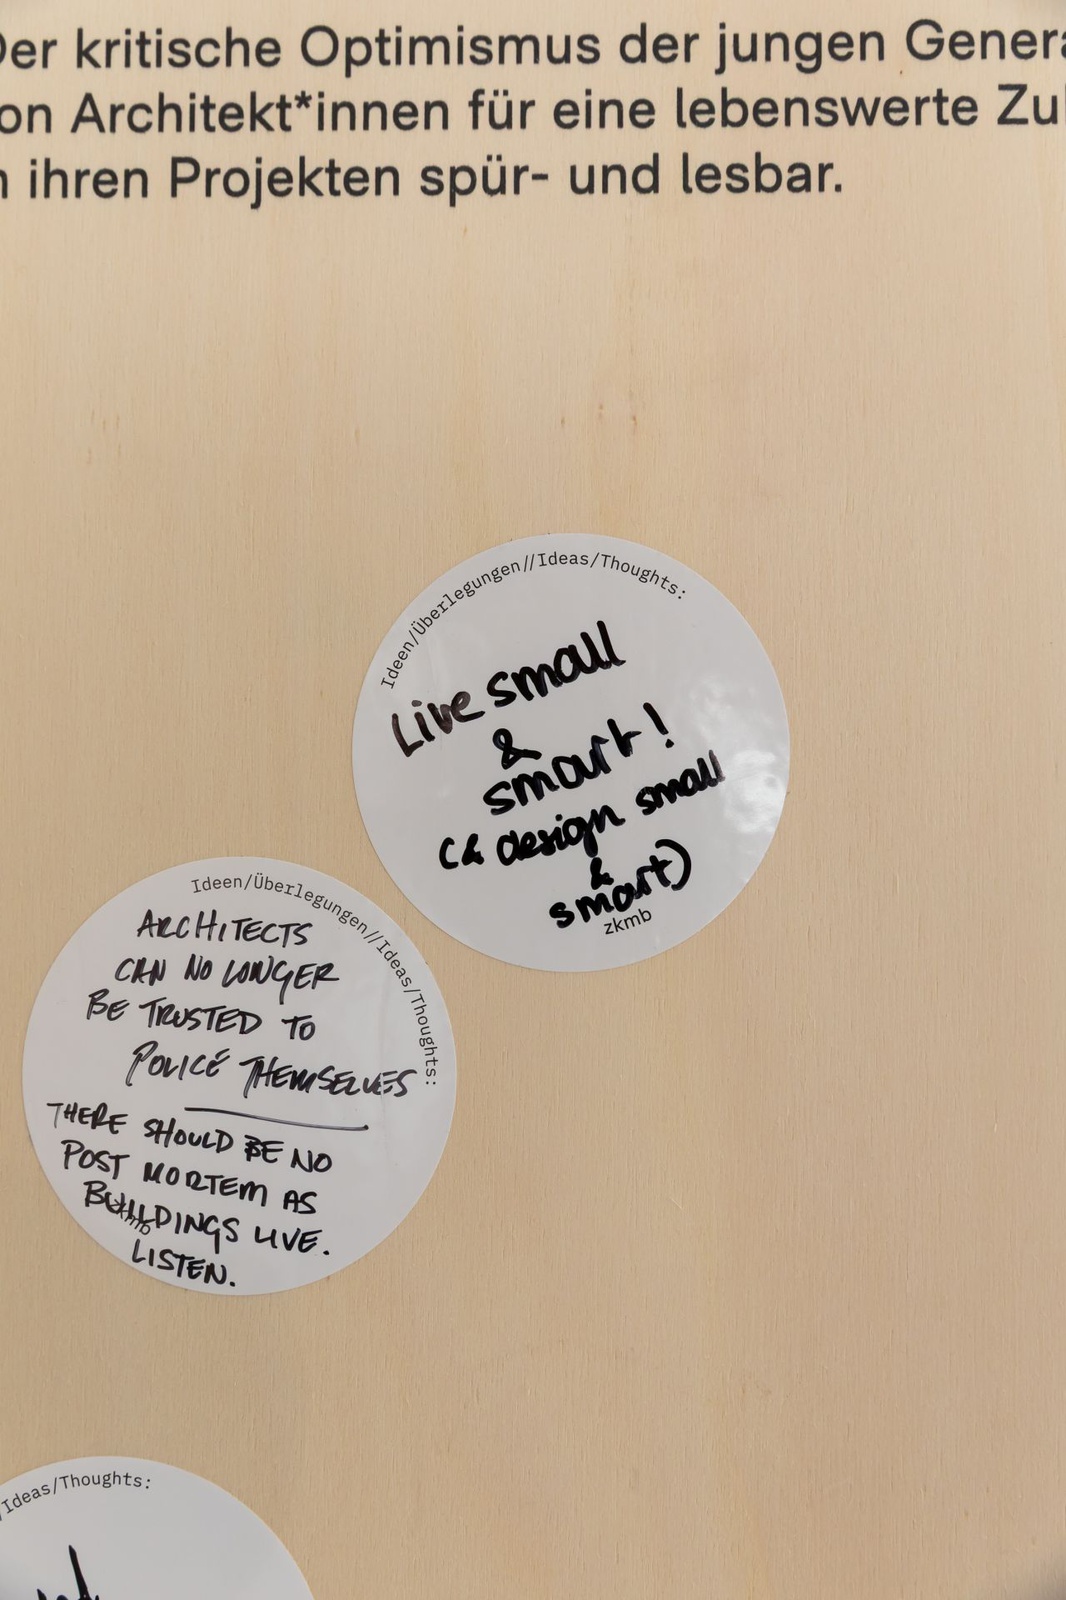 Der kritische Optimismus der jungen Genera
on Architekt*innen für eine lebenswerte Zu
n ihren Projekten spür- und lesbar.
Ideen/Überlegungen//Ideas/Thoughts:
Live small
&
smart!
(& design small
&
smart)
zkmb
Ideen/Überlegungen//Ideas/Thoughts:
ARCHITECTS
CAN NO LONGER
BE TRUSTED TO
POLICE THEMSELVES
THERE SHOULD BE NO
POST MORTEM AS
BUILDINGS LIVE.
LISTEN.
zkmb
/Ideas/Thoughts: